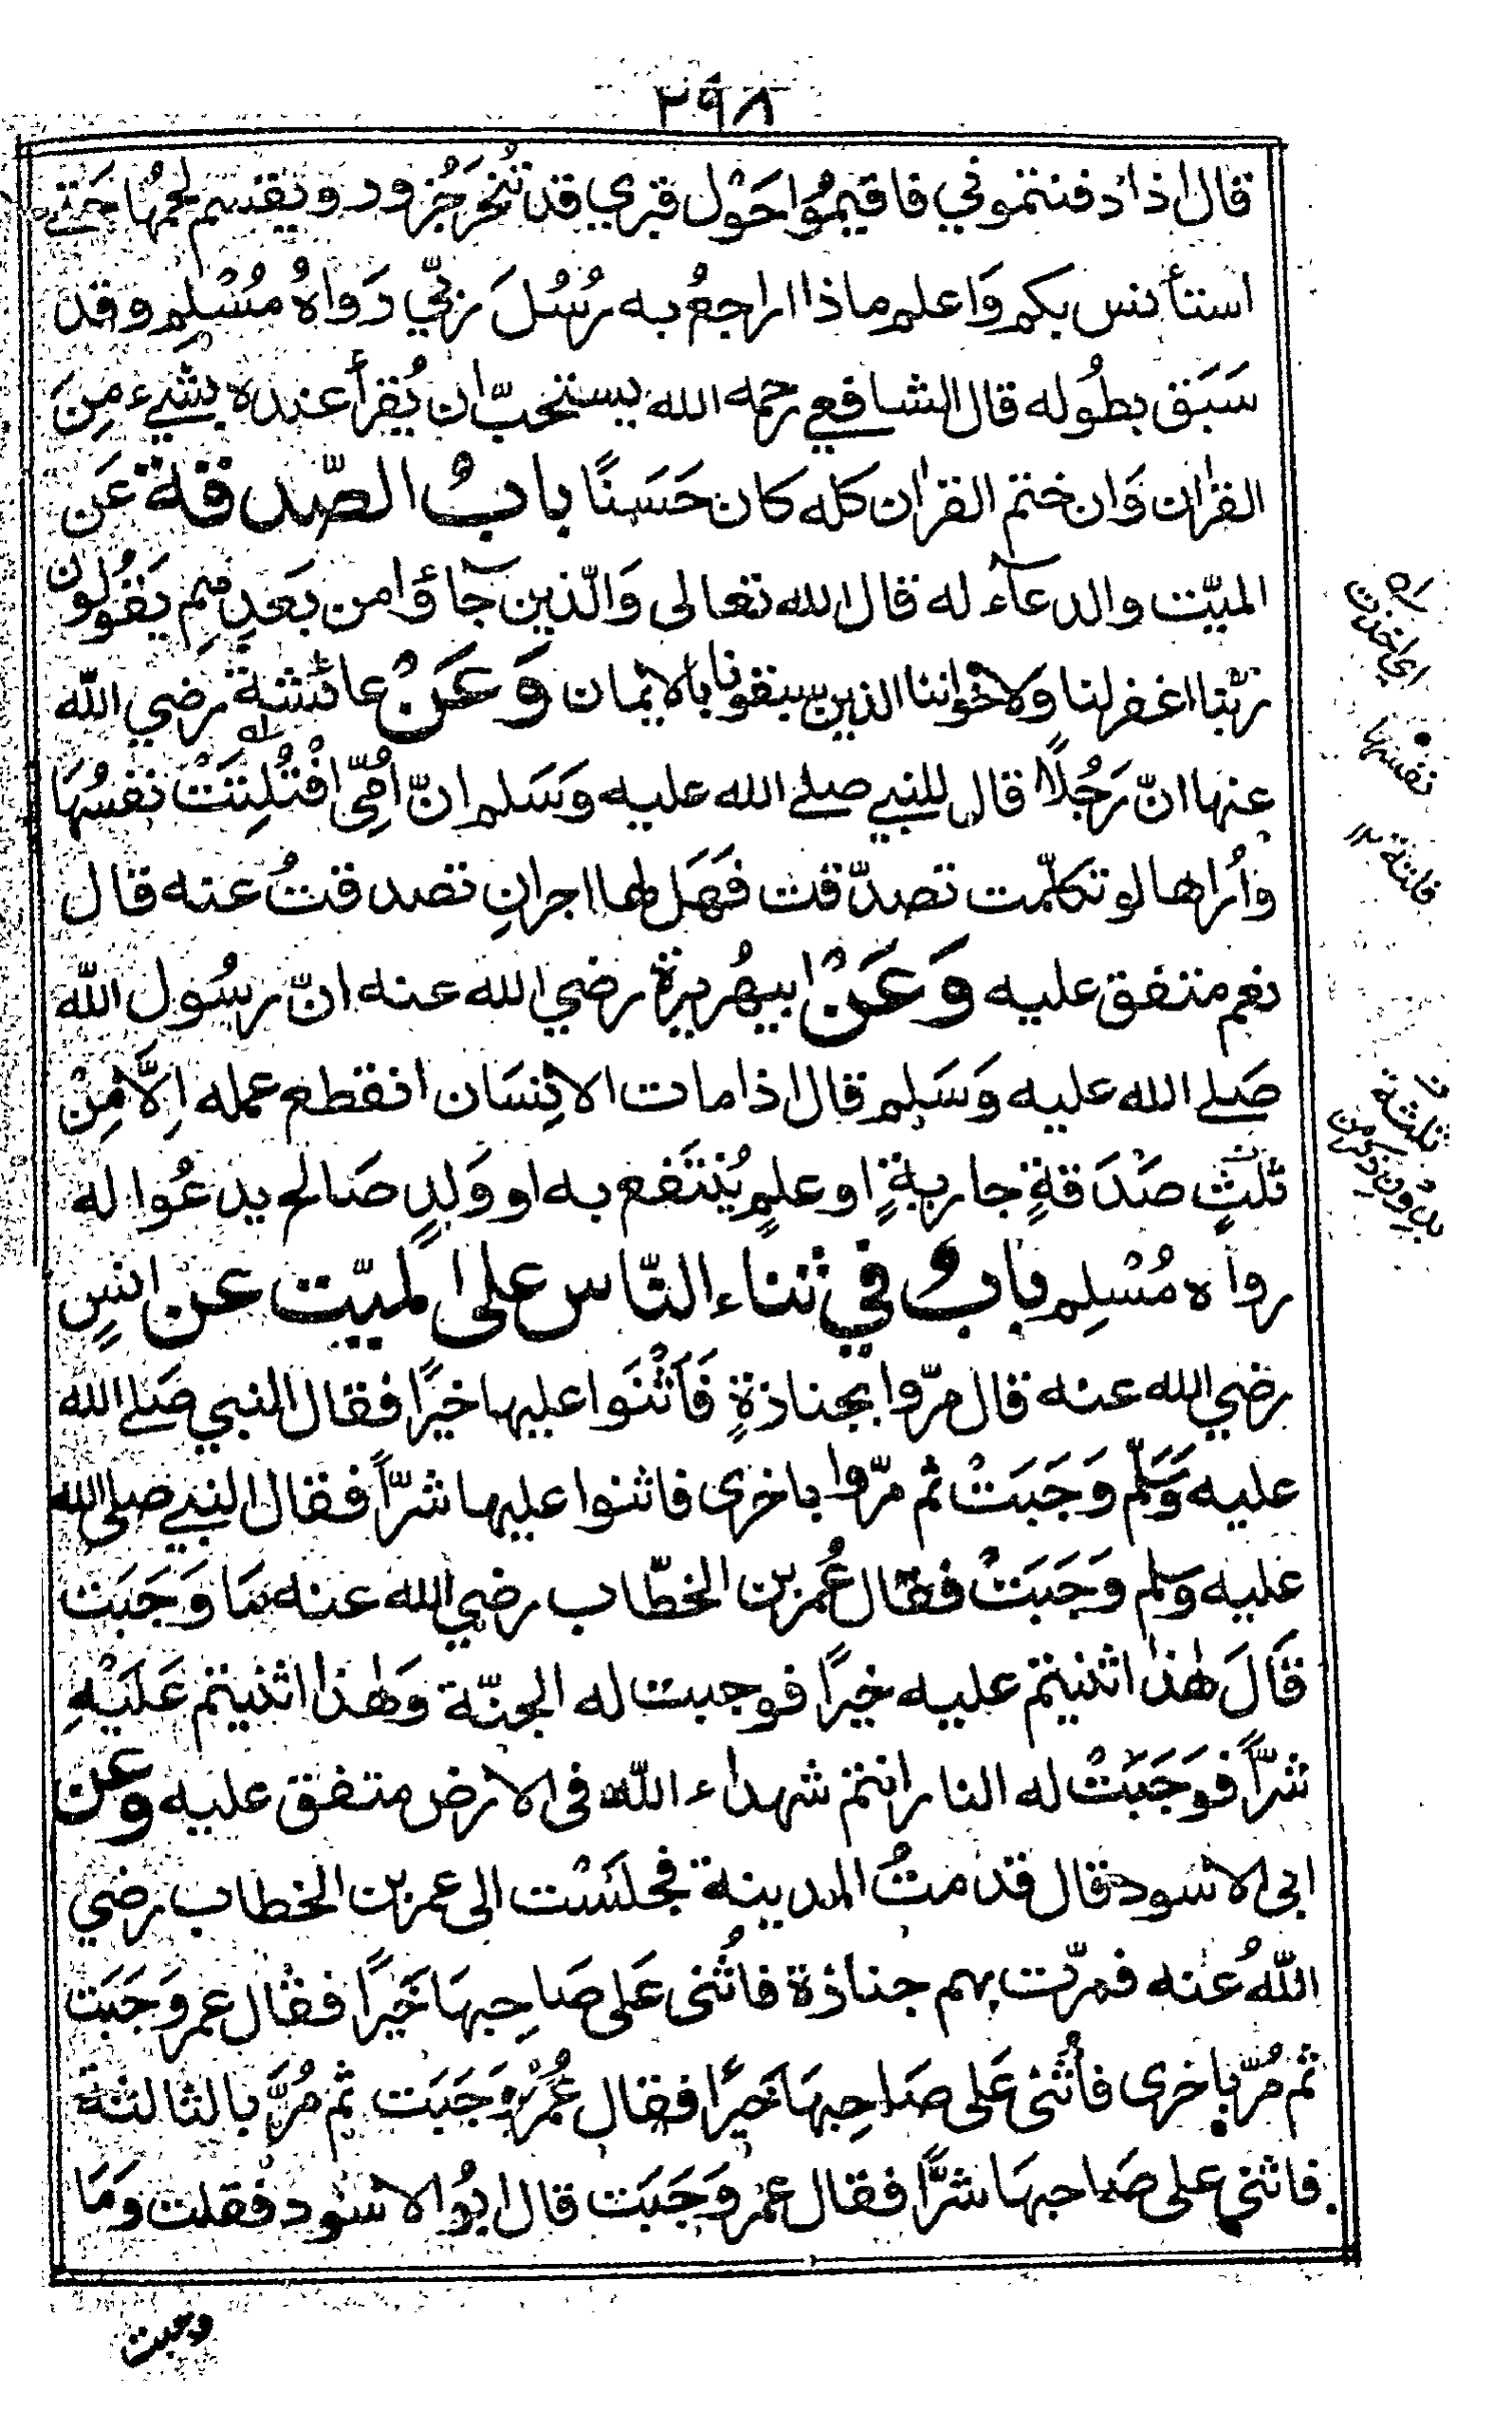 ٣٩٨
قال اذا دفنتموني فاقيمُوا حَوْل قبري قد تُنحَر جُزور و يقسم لحمُها حَتّے
استأنس بكم وَاعلم ماذا اراجعُ به رُسُلَ رَبّي رَواهُ مُسْلِم وقد
سَبَق بطُوله قال الشافعي رحمه الله يستحبّ ان يُقرأ عنده بشيء مِنَ
القرٰان وَان ختم القرٰان كله كان حَسَنًا بابُ الصّدقة عَن
الميّت والدعآء له قال الله تعالى وَالّذين جآؤا من بَعدِهِم يَقُولُون
ربّنا اغفر لنا ولاخواننا الذين سبقونا بالايمان وَعَنْ عائشة رضي الله
عنها انّ رَجُلًا قال للنبي صلے الله عليه وَسَلم انّ اُمِّي افْتُلِتَتْ نفسُهَا
وَاُراها لو تكلّمت تصدّقت فَهَل لها اجر ان تصدقتُ عنه قال
نعم متفق عليه وَعَنْ ابيهُريرة رضي الله عنه انّ رسُول الله
صَلے الله عليه وَسَلم قال اذا مات الانِسَان انقطع عمله اِلَّا مِنْ
ثلثٍ صَدَقةٍ جاريةٍ او علمٍ يُنتَفع به او وَلدٍ صَالح يدعُوا له
رواه مُسْلِم بابُ في ثناء النّاس على الميّت عن انسٍ
رضي الله عنه قال مرّوا بجنازةٍ فَاَثْنَوا عليها خيرًا فقال النبي صَلے الله
عليه وَسَلّم وَجَبَتْ ثم مرّوا باخرى فاثنوا عليها شرّاً فقال النبے صلى الله
عليه وسلم وَجَبَتْ فقال عُمر بن الخطّاب رضي الله عنه مَا وَجَبَت
قَالَ هٰذا اثنيتم عليه خيرًا فوجبت له الجنّة وَهٰذا اثنيتم عَلَيْهِ
شرّاً فوَجَبَتْ له النار انتم شهداء الله فى الارض متفق عليه وعن
ابى الاسود قال قدمتُ المدينة فجلسْت الى عمر بن الخطاب رضي
اللّٰهُ عنه فمرّت بهم جنازة فاُثنى عَلى صَاحِبهَا خَيرًا فقال عمر وَجَبَت
ثم مُرّ باخرى فاُثنى عَلى صَاحِبهَا خَيرًا فقال عُمَرُ وَجَبَت ثم مُرَّ بالثالثة
فاثني على صَاحبهَا شرًّا فقال عمر وَجَبَت قال ابُو الاسْود فقلت وَمَا
له اي اخذت
نفسها
فلتة
ثلثة
وجبت